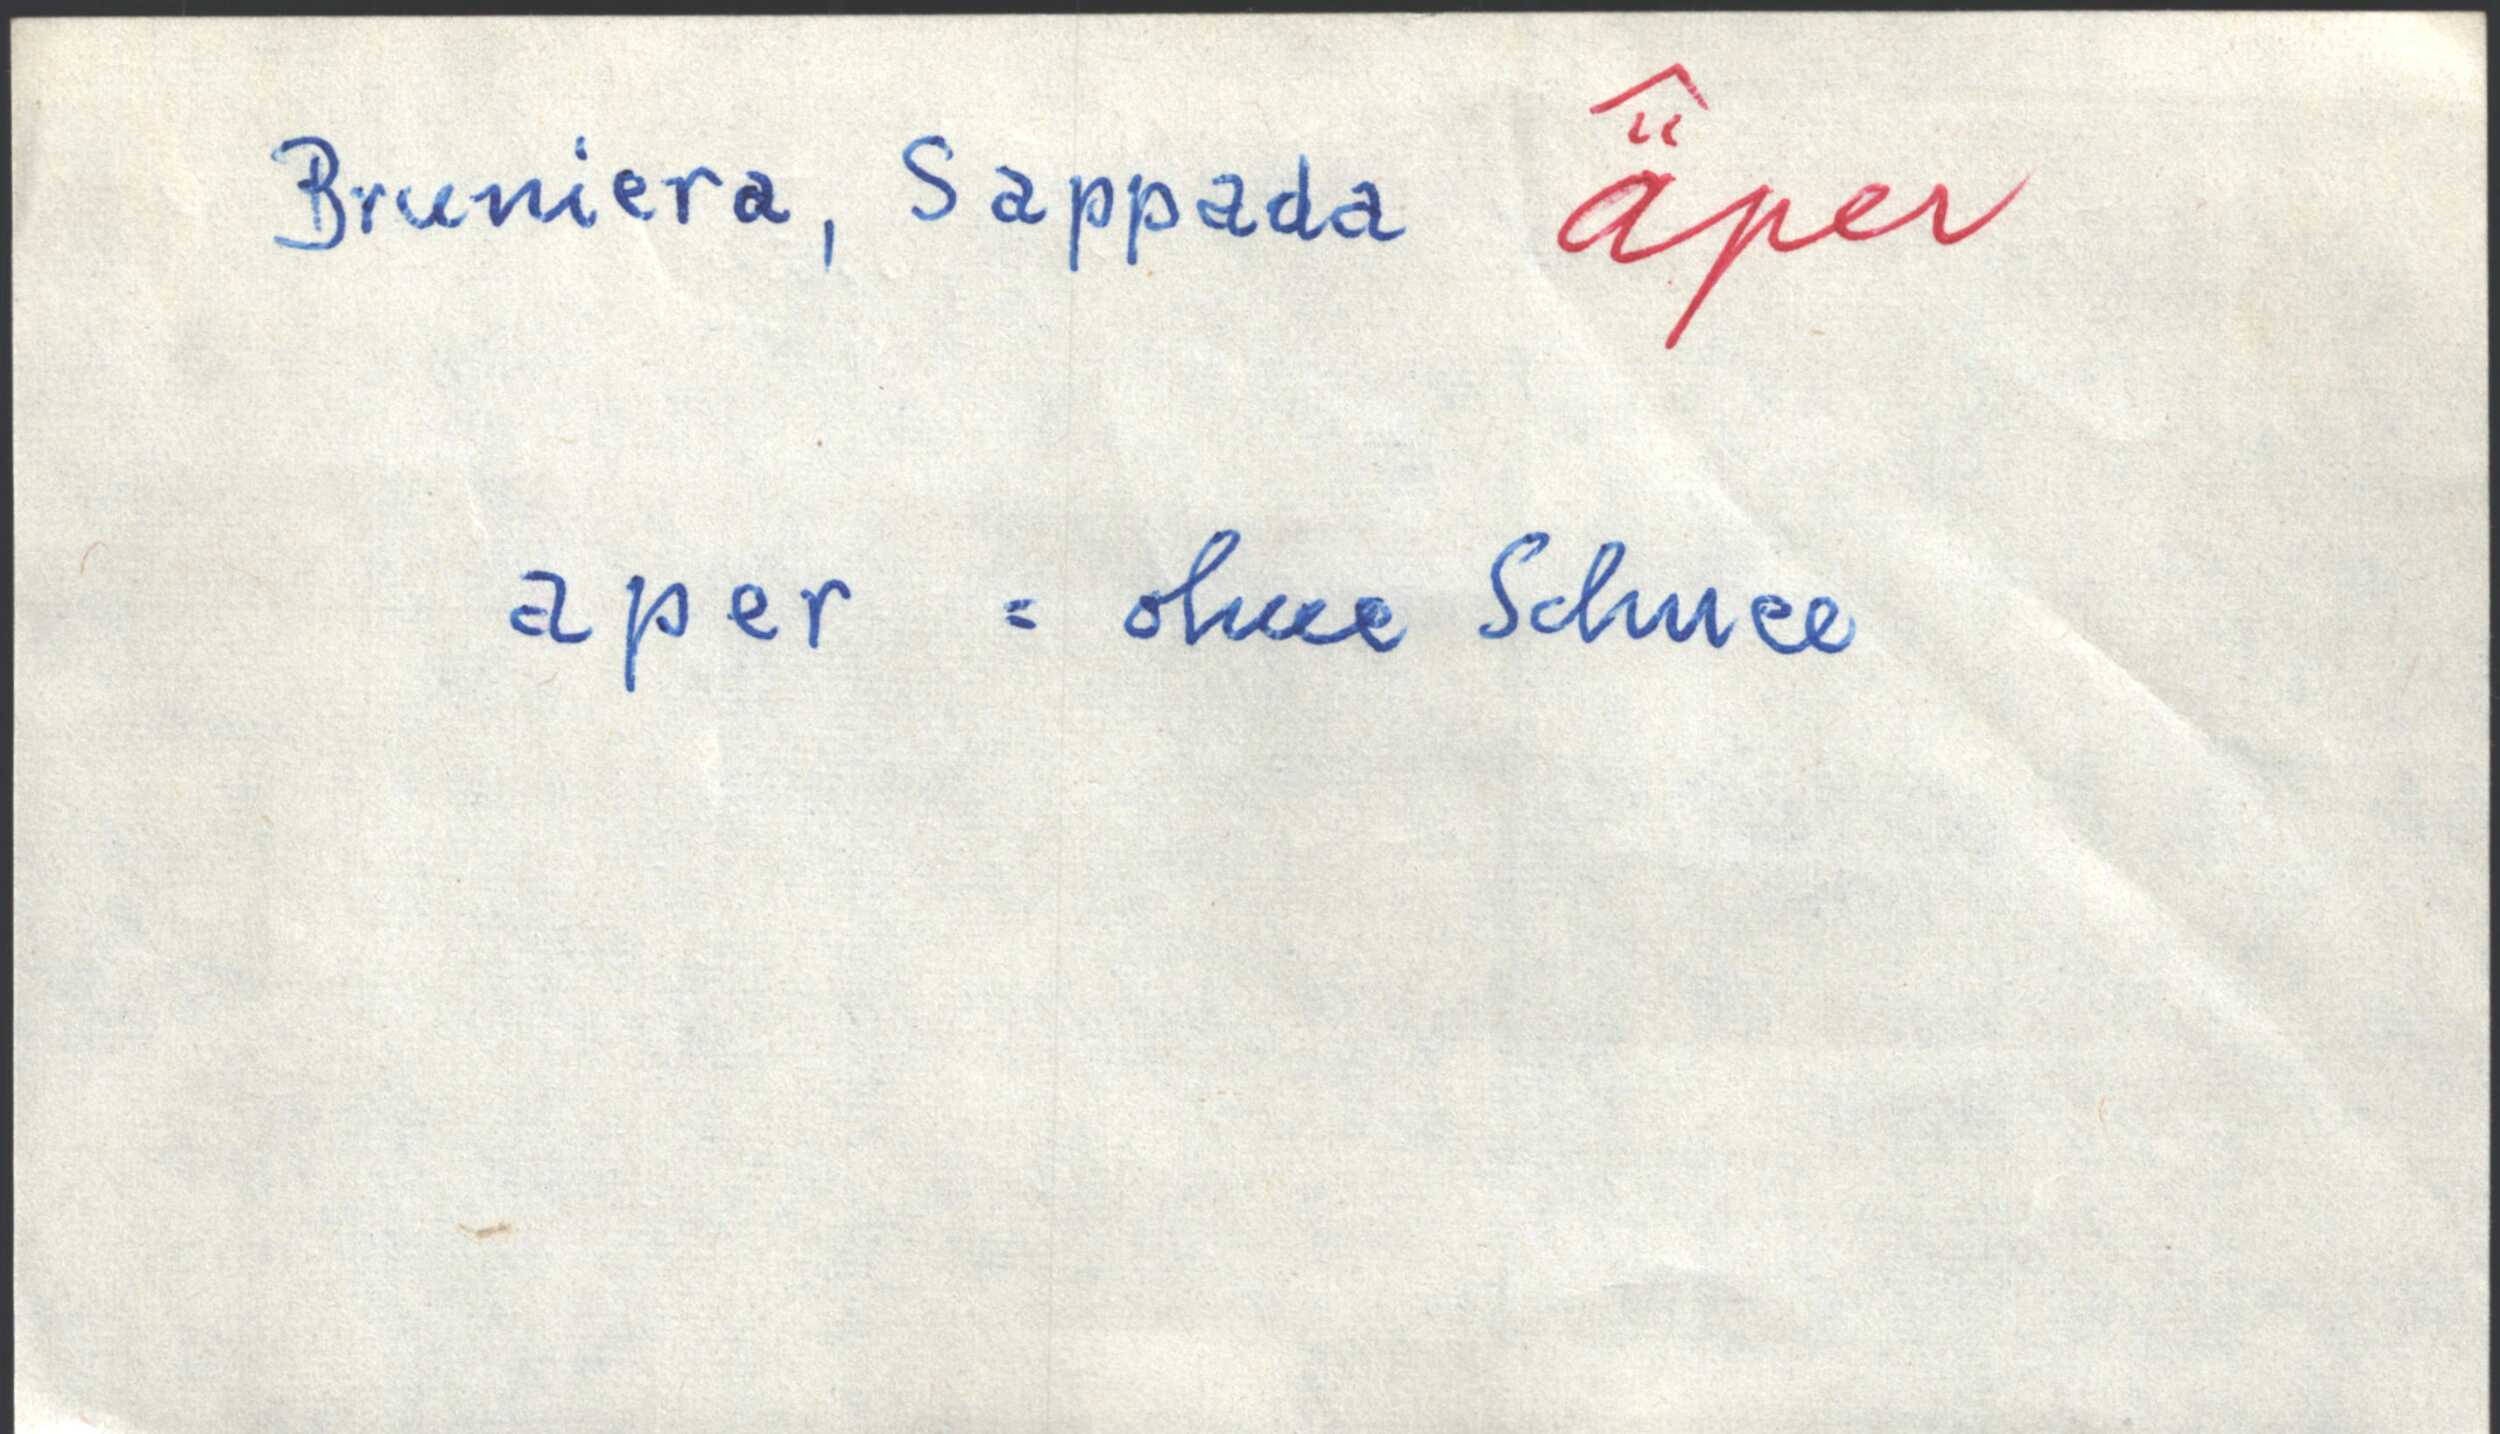 Bruniera, Sappada ä̂per
aper = ohne Schnee